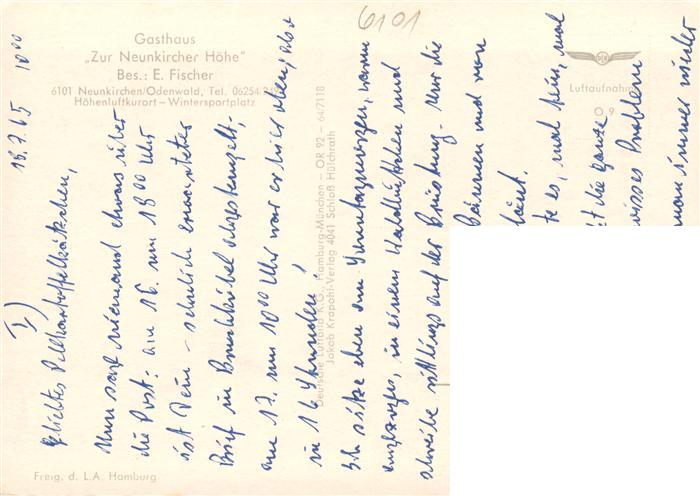 Gasthaus
„Zur Neunkircher Höhe"
Bes.: E. Fischer
6101 Neunkirchen/Odenwald, Tel. 06254/
Höhenluftkurort – Wintersportplatz
6101
Luftaufnahme
O 9
Deutsche Luftbild K.G., Hamburg-München – OR 92 – 64/7118
Jakob Krapohl-Verlag 4041 Schloß Hülchrath
Freig. d. L.A. Hamburg
I)
18.7.65 10⁰⁰
Geliebtes Pellkartoffelkätzchen,
Nun sage niemand etwas über
die Post: am 16. um 18⁰⁰ Uhr
ist Dein – sehnlich erwarteter
Brief in abgestempelt,
am 17. um 10⁰⁰ Uhr war er hier oben, also
in 16 Stunden!
Ich sitze eben am Sonntagmorgen, warm
in einem und
schreibe auf der Brüstung. Nur die
Bäumen und von
te es, mal
t die ganze
wisses Problem
man immer wieder